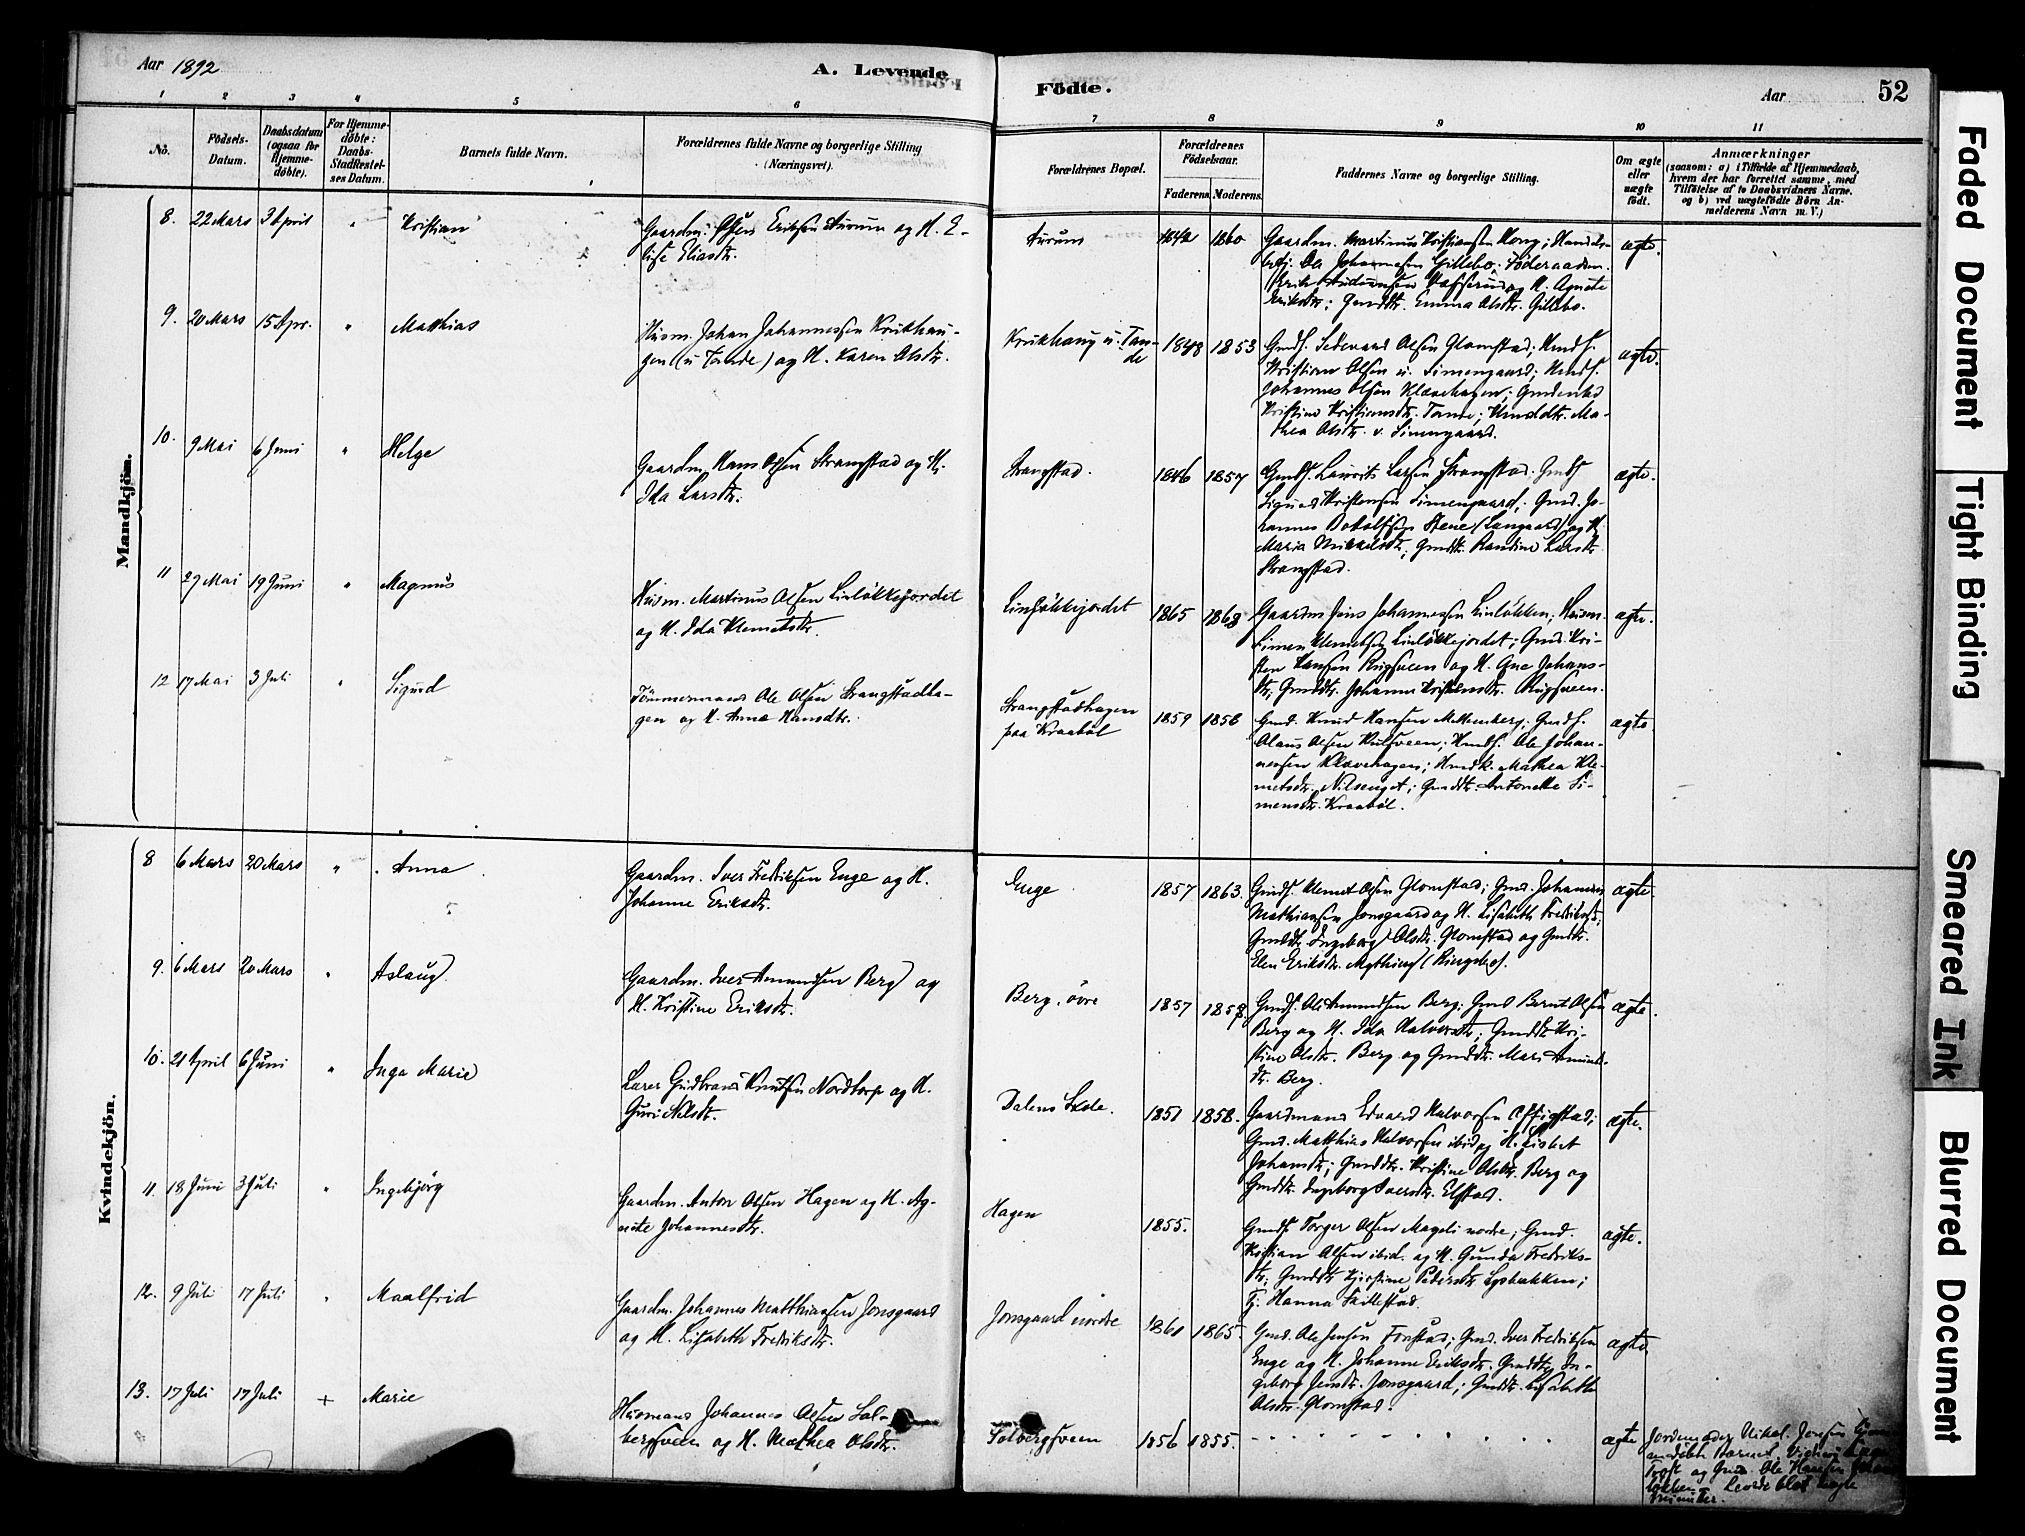 Aar 1892
A. Levende
Födte.
Aar
52
1 2 3 4 5 6 7 8 9 10 11
No.
Födsels-
Datum.
Daabsdatum
(ogsaa for
Hjemme-
döbte).
For Hjemme-
döbte:
Daabs-
Stadfæstel-
ses Datum.
Barnets fulde Navn.
Forældrenes fulde Navne og borgerlige Stilling
(Næringsvei).
Forældrenes Bopæl.
Forældrenes
Födselsaar.
Faderens. Moderens.
Faddernes Navne og borgerlige Stilling.
Om ægte
eller
uægte
födt.
Anmærkninger
(saasom: a) i Tilfælde af Hjemmedaab,
hvem der har forrettet samme, med
Tilföielse af to Daabsvidners Navne,
og b) ved uægtefödte Börn An-
melderens Navn m. V.)
Mandkjön.
8. 22 Mars 3 April " Kristian
Gaardm. Eriksen Aurum og H. E-
lise Eliasdtr.
Aurum 1842 1860
Gaardm. Martinus Kristiansen Kong; Handels-
betj. Ole Johannesen Gillebo; Föderaadsm.
Erik og K. Agnete
Eriksdtr; Gmdtr. Emma Olsdtr. Gillebo.
ægte.
9. 20 Mars 15 Apr. " Matthias
Husm. Johan Johannessen Krukhau-
gen (u Tande) og H. Karen Olsdtr.
Krukhaug u. Tan-
de
1848 1853
Gmds. Sedevard Olsen Glomstad; Hmds.
Kristian Olsen u. Simengaard; Hmds.
Johannes Olsen Klævehagen; Gmdenke
Kristine Kristiansdtr. Tande; Hmddtr. Ma-
thea Olsdtr. v. Simengaard.
ægte.
10. 9 Mai 6 Juni " Helge
Gaardm. Hans Olsen Strangstad og H.
Ida Larsdtr.
Strangstad. 1846 1857
Gmds. Laurits Larsen Strangstad. Gmds
Sigurd Kristensen Simengaard; Gmd. Jo-
hannes Botolfsen Stene (Langaard) og H.
Maria Mikkelsdtr; Gmdtr. Randine Larsdtr.
Strangstad.
ægte.
11 29 Mai 19 Juni " Magnus
Husm. Martinus Olsen Linlökkejordet
og H. Ida Klemetsdtr.
Linlökkejordet 1865 1868
Gaardm Jens Johannessen Linlökken; Husm.
Simen Klemetsen Linlökkejordet; Gmd. Kri-
sten Hansen Ringsveen og H. Ane Johans-
dtr; Gmddtr. Johanne Kristiansdtr. Ringsveen.
ægte.
12 17 Mai 3 Juli " Sigurd
Tömmermand Ole Olsen Strangstadha-
gen og H. Anne Hansdtr.
Strangstadhagen
paa Kraaböl
1859 1856
Gmd. Knud Hansen Mellemberg; Gmds.
Olaus Olsen Kulsveen; Hmds. Ole Johan-
nessen Klævehagen; Hmdk. Mathea Kle-
metsdtr. Nilsenget; Gmddtr. Antonette Si-
mensdtr. Kraaböl.
ægte
Kvindekjön.
8 6 Mars 20 Mars " Anna
Gaardm. Iver Fredriksen Enge og H.
Johanne Eriksdtr.
Enge 1857 1863.
Gmds. Klemet Olsen Glomstad; Gmd. Johannes
Mathiassen Jonsgaard og H. Lisabeth Fredriksdtr;
Gmddtr. Ingeborg Olsdtr. Glomstad og Gmdtr.
Elen Eriksdtr. Mytting (Ringebo).
ægte.
9. 6 Mars 20 Mars " Aslaug
Gaardm. Iver Amundsen Berg og
H. Kristine Eriksdtr.
Berg, övre 1857 1858.
Gmds. Ole Amundsen Berg; Gmd Bernt Olsen
Berg og H. Ida Halvorsdtr; Gmddtr Kri-
stine Olsdtr. Berg og Gmddtr. Mari Amunds-
dtr. Berg.
ægte.
10. 21 April 6 Juni " Inga Marie
Lærer Gudbrand Knutsen Nordtorp og H.
Guri Nilsdtr.
Dalens Skole. 1851 1858.
Gaardmand Edvard Halvorsen Offigstad;
Gmd. Matthias Halvorsen ibid og H. Lisbet
Johansdtr; Gmddtr. Kristine Olsdtr. Berg og
Gmddtr. Ingeborg Iversdtr. Elstad.
ægte.
11. 18 Juni 3 Juli " Ingebjörg
Gaardm. Anton Olsen Hagen og H. Ag-
nete Johannesdtr.
Hagen 1855.
Gmds Torger Olsen Mageli nordre; Gmd.
Kristian Olsen ibid. og H. Gunda Fredriks-
dtr; Gmddtr Kjerstine Pedersdtr. Lysbakken;
Tj. Hanna Skillestad.
ægte.
12. 9 Juli 17 Juli " Maalfrid
Gaardm. Johannes Matthiassen Jonsgaard
og H. Lisabeth Fredriksdtr.
Jonsgaard nordre 1861 1865.
Gmd. Ole Jensen Forstad; Gmd. Iver Fredriksen
Enge og H. Johanne Eriksdtr. Gmddtr In-
geborg Jensdtr. Jonsgaard; Gmddtr. Lisabeth
Olsdtr. Glomstad.
ægte.
13. 17 Juli 17 Juli + Marie
Husmand Johannes Olsen Sol-
bergsveen og H. Mathea Olsdtr.
Solbergsveen 1856 1855.
ægte
Jordemoder Nikol. Jensen
Barnet. Vidner
og Gmd. Ole Hansen
Levede blot nogle
Minutter.
Faded Document
Tight Binding
Smeared Ink
Blurred Document